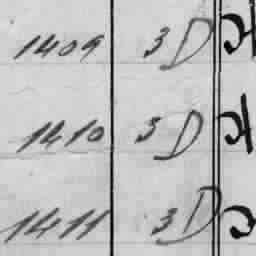 1409 3D
1410 3D
1411 3D